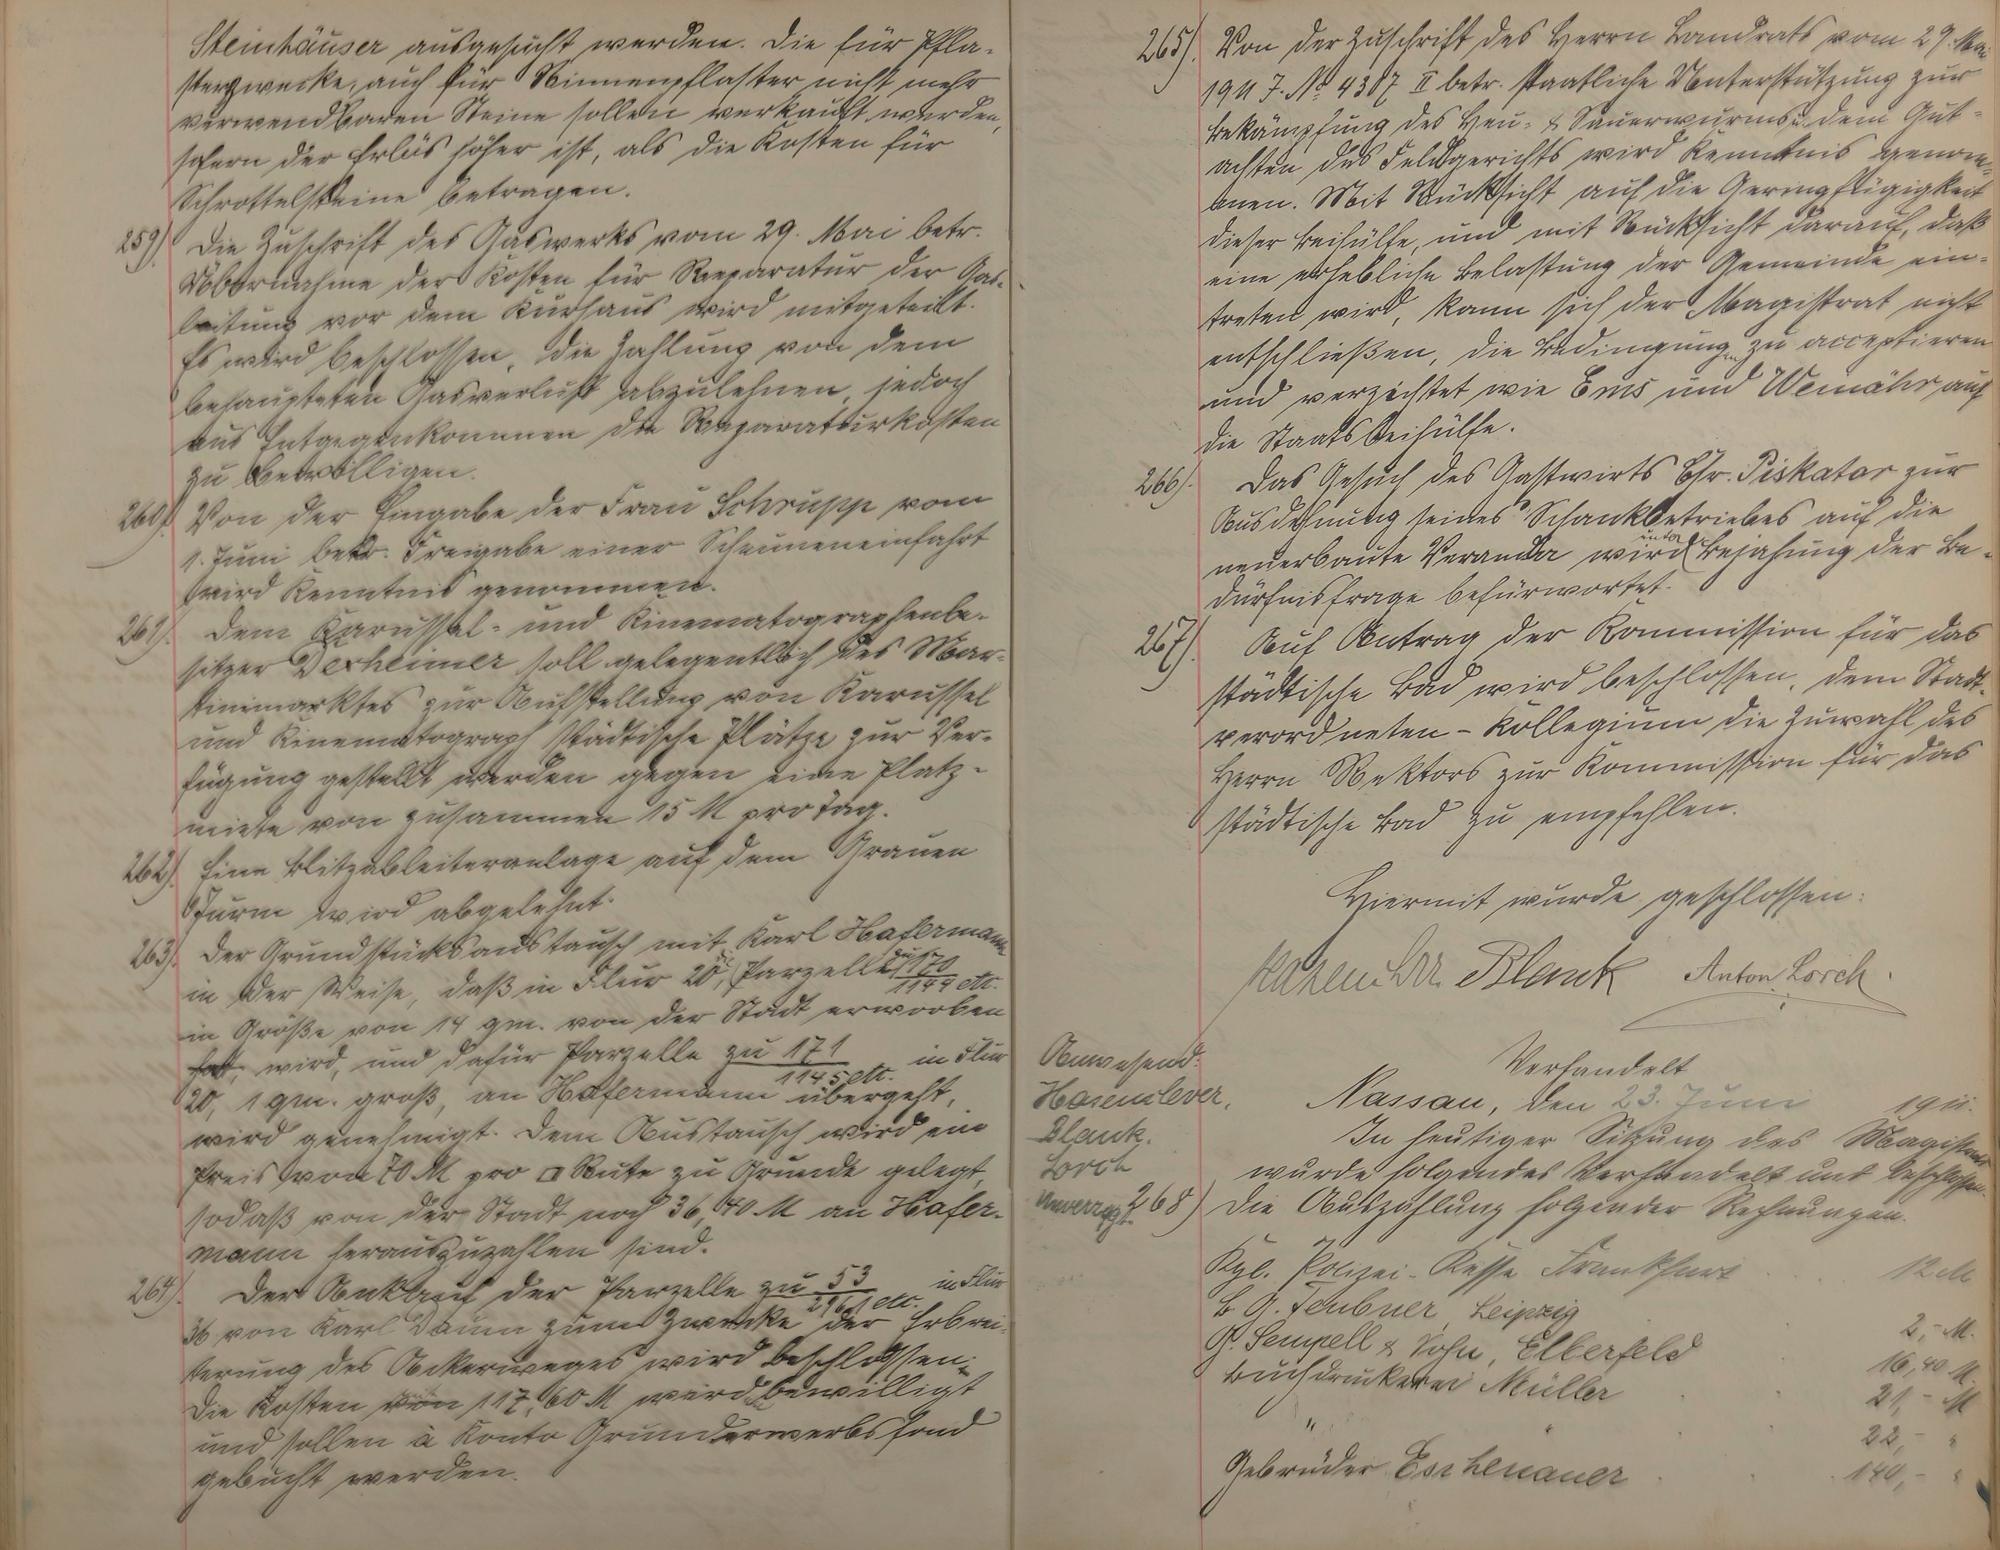 Steinhäuser ausgesucht werden. Die für Pfla-
sterzwecke, auch für Rinnenpflaster nicht mehr
verwendbaren Steine sollen verkauft werden,
sofern der Erlös höher ist, als die Kosten für
Schrottelsteine betragen.
259). Die Zuschrift des Gaswerks vom 29. Mai betr.
Übernahme der Kosten für Reparatur der Gas-
leitung vor dem Kurhaus wird mitgeteilt.
Es wird beschlossen, die Zahlung von dem
behaupteten Gasverlust abzulehnen, jedoch
aus Entgegenkommen die Reparaturkosten
zu bewilligen.
260). Von der Eingabe der Frau Schrupp vom
1. Juni betr. Freigabe einer Scheuneneinfahrt
wird Kenntnis genommen.
261). Dem Karussel- und Kinematographenbe-
sitzer Dexheimer soll gelegentlich des Mar-
tinimarktes zur Aufstellung von Karussel
und Kinematograph städtische Plätze zur Ver-
fügung gestellt werden gegen eine Platz-
miete von zusammen 15 M pro Tag.
262). Eine Blitzableiteranlage auf dem Grauen
Turm wird abgelehnt.
263). Der Grundstücksaustausch mit Karl Hafermann
in der Weise, daß in Flur 20, Parzelle zu 170
1144 etc.
in Größe von 14 qm. von der Stadt erworben
wird, und dafür Parzelle zu 171 in Flur
1145 etc.
20, 1 qm. groß, an Hafermann übergeht,
wird genehmigt. Dem Austausch wird ein
Preis von 70 M pro □ Rute zu Grunde gelegt,
sodaß von der Stadt noch 36,40 M an Hafer-
mann herauszuzahlen sind.
264). Der Ankauf der Parzelle zu 53 in Flur
2961 etc.
36 von Karl Daum zum Zwecke der Erbrei-
terung des Ackerweges wird beschlossen;
Die Kosten von 117,60 M wird bewilligt
und sollen à Konto Grunderwerbsfond
gebucht werden.
265). Von der Zuschrift des Herrn Landrats vom 29. Mai
1911 J. No 4307 II betr. staatliche Unterstützung zur
Bekämpfung des Heu- & Sauerwurms u. dem Gut-
achten des Feldgerichts wird Kenntnis genom-
men. Mit Rücksicht auf die Geringfügigkeit
dieser Beihülfe, und mit Rücksicht darauf, daß
eine erhebliche Belastung der Gemeinde ein-
treten wird, kann sich der Magistrat nicht
entschließen, die Bedingungen zu acceptieren
und verzichtet wie Ems und Weinähr auf
die Staatsbeihülfe.
266). Das Gesuch des Gastwirts Chr. Piskator zur
Ausdehnung seines Schankbetriebes auf die
neuerbaute Veranda wird unter Bejahung der Be-
dürfnisfrage befürwortet.
267). Auf Antrag der Kommission für das
städtische Bad wird beschlossen, dem Stadt-
verordneten-Kollegium die Zuwahl des
Herrn Rektors zur Kommission für das
städtische Bad zu empfehlen.
Hiermit wurde geschlossen:
Hasenclever Blank Anton Lorch.
Verhandelt
Anwesend:
Hasenclever,
Blank.
Lorch
Unverzagt.
Nassau, den 23. Juni 1911.
In heutiger Sitzung des Magistrats
wurde folgendes verhandelt und beschlossen.
268) Die Auszahlung folgender Rechnungen.
Kgl. Polizei-Kasse Frankfurt 12 M
B. G. Teubner, Leipzig 2,- M.
P. Sempell & Sohn, Elberfeld 16,40 M.
Buchdruckerei Müller 21,- M
" " 22,- "
Gebrüder Eschenauer 140,- "